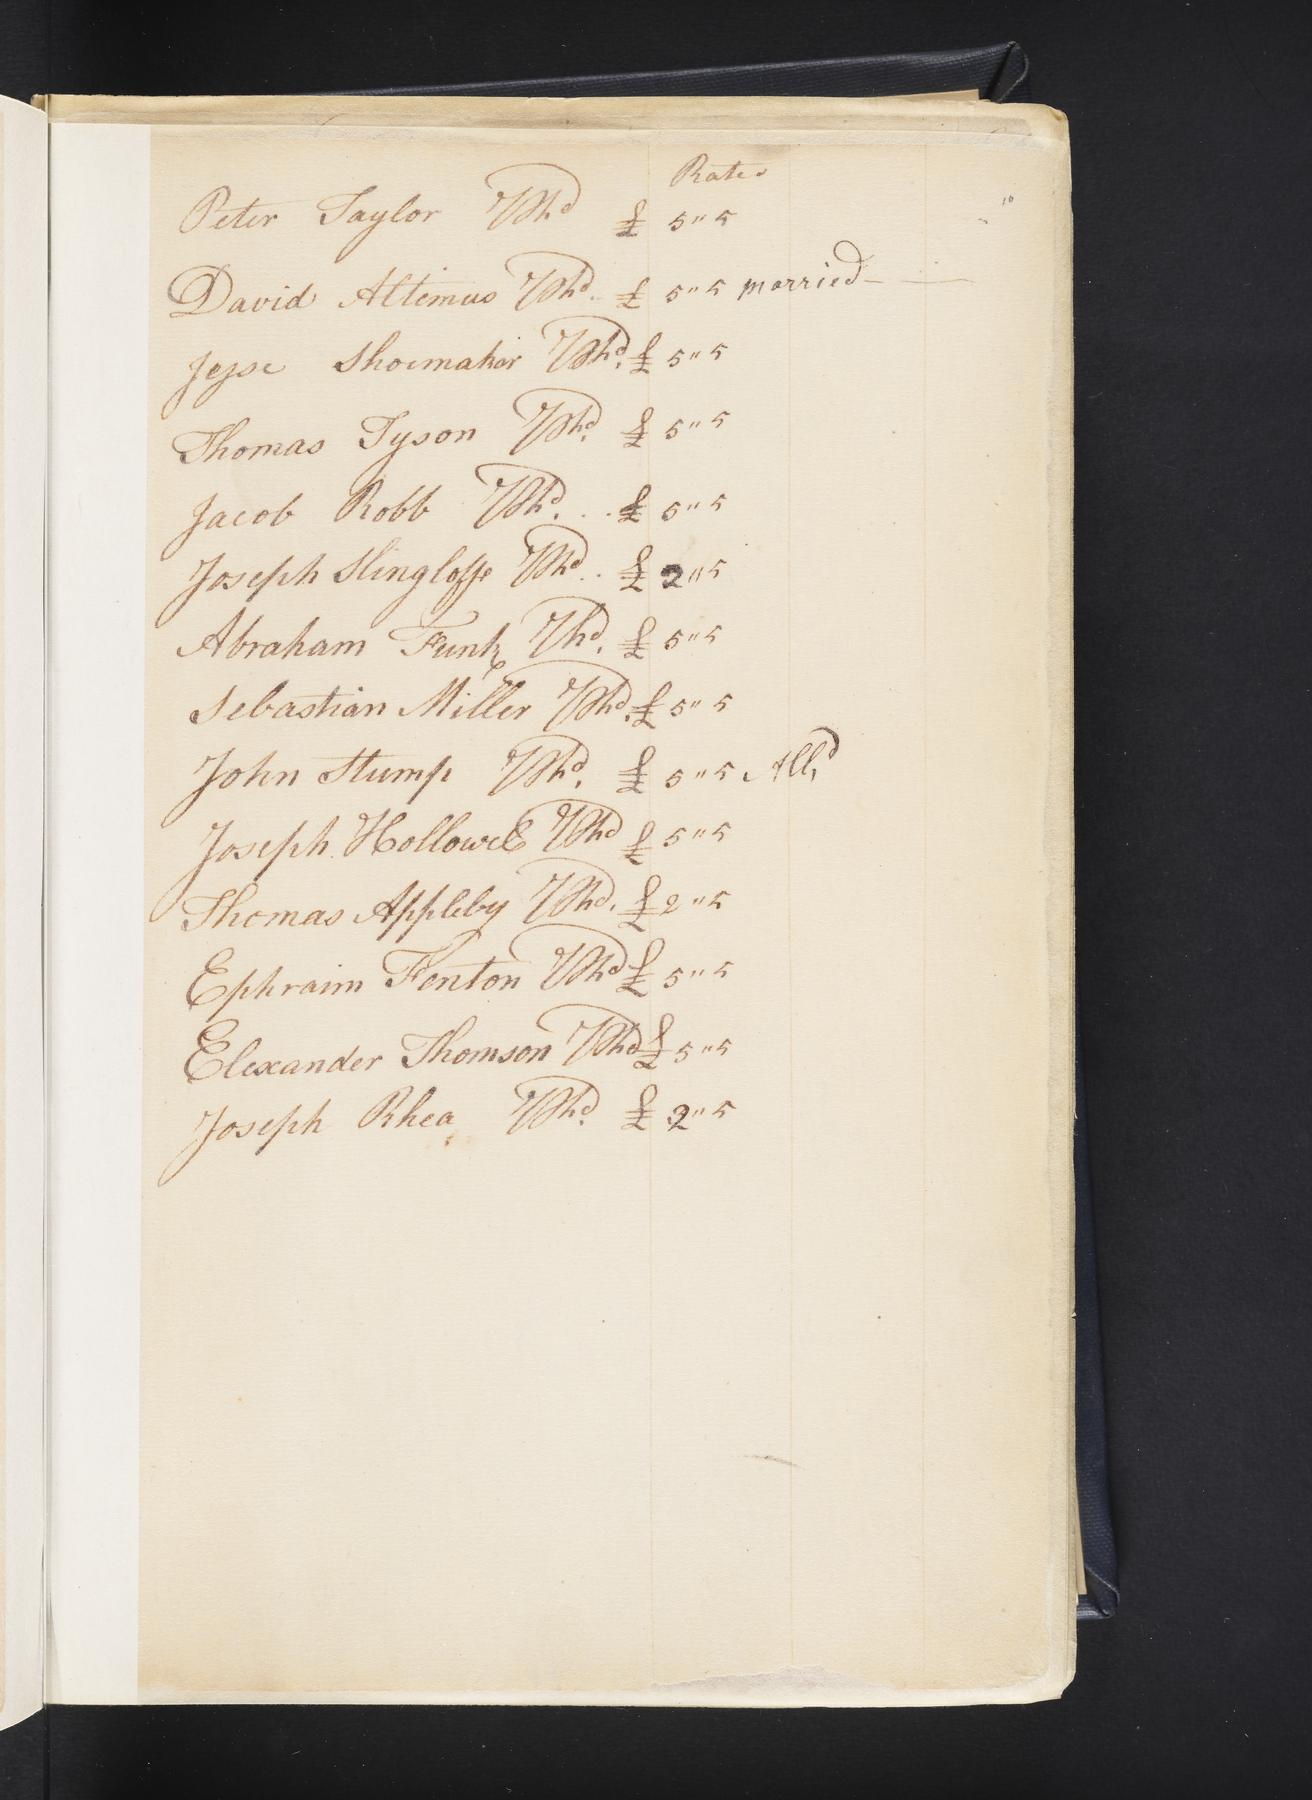 Rates
Peter Taylor £ 5"5
David Altemus £ 5"5 married
Jesse Shoemaker £ 5"5
Thomas Tyson £ 5"5
Jacob Robb £ 5"5
Joseph Slingloffe £ 2"5
Abraham Funk £ 5"5
Sebastian Miller £ 5"5
John Stump £ 5"5
Joseph Hollowell £ 5"5
Thomas Appleby £ 2"5
Ephraim Fenton £ 5"5
Elexander Thomson £ 5"5
Joseph Rhea £ 2"5